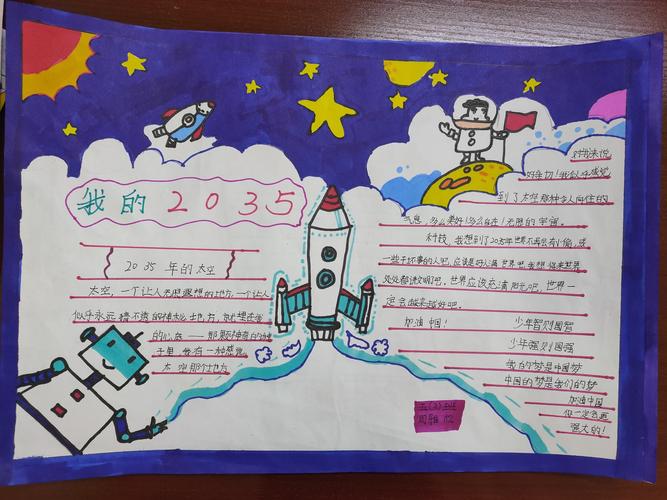 我的2035
2035年的太空
太空,一个让人无限遐想的地方,一个让人
似乎永远猜不透的神秘地方,就埋在我
的心底——那颗神奇的种
子里,我有一种感觉
太空那个地方
对我来说
好亲切!我似乎感觉
到了太空那种令人向往的
气息,多么美好!多么自在!无限的宇宙。
科技,我想到了2035年世界不再会有小偷,或
一些干坏事的人吧,应该是好人满世界吧,我想
处处都讲文明吧,世界应该充满阳光吧,世界一
定会越来越好吧。
加油中国!
少年智则国智
少年强则国强
我的梦是中国梦
中国的梦是我们的梦
加油中国
你一定会更
强大的!
五(2)班
周雅